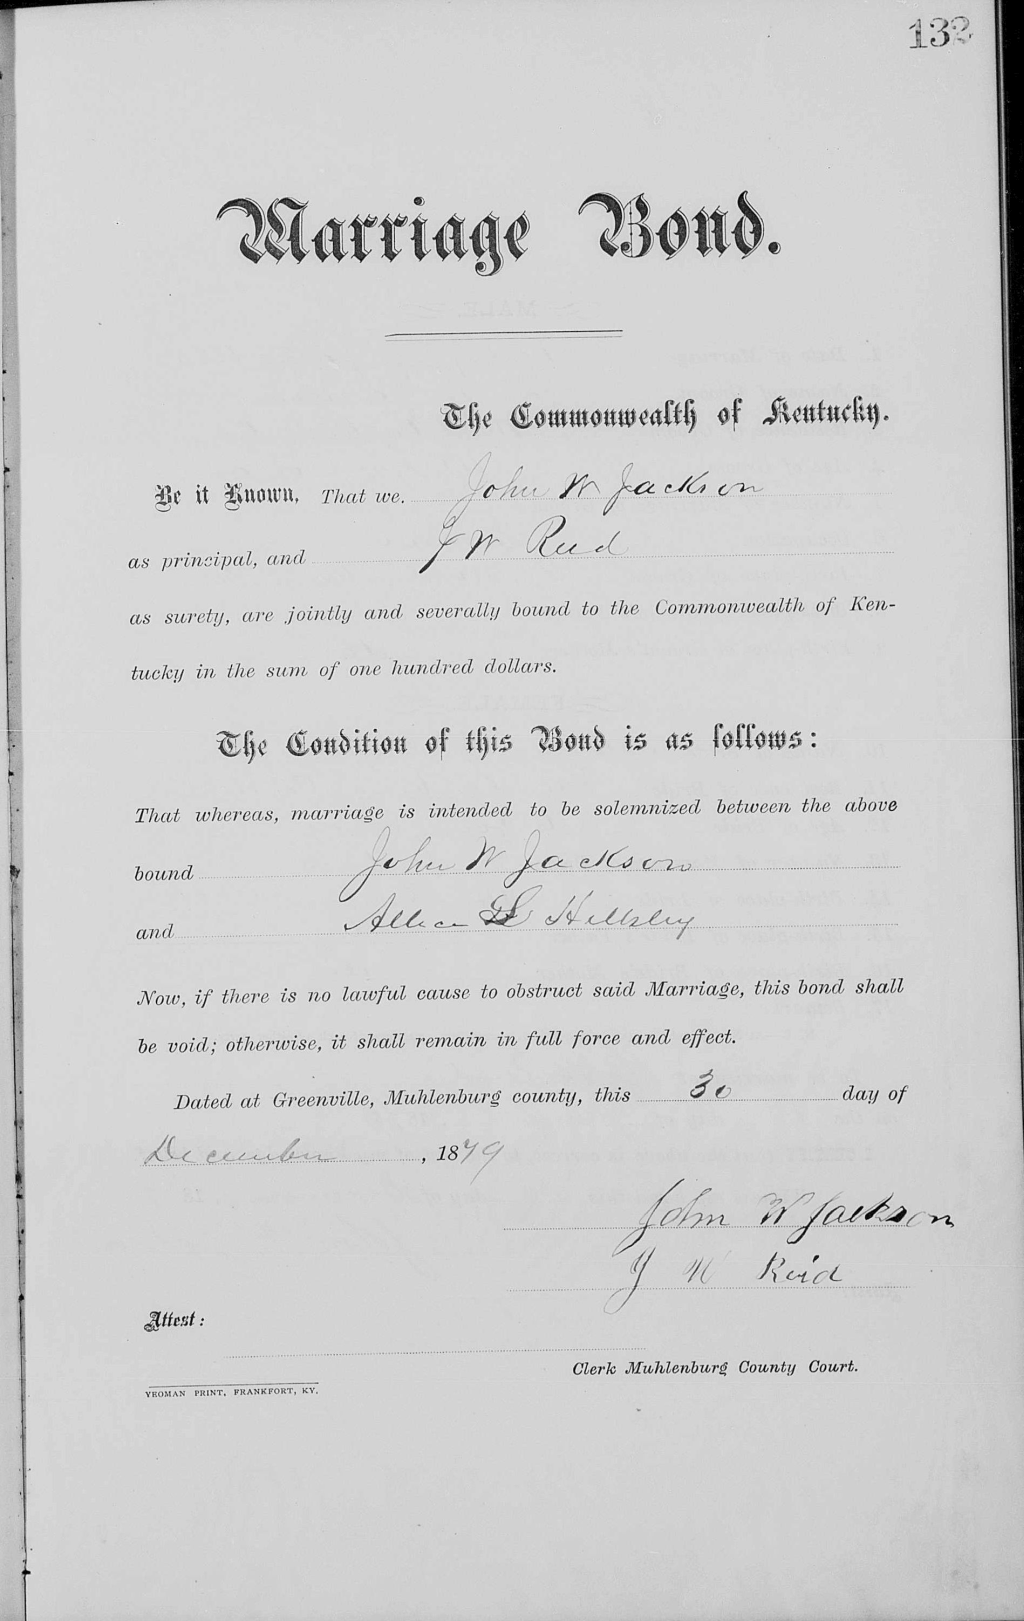 132
Marriage Bond.
The Commonwealth of Kentucky.
Be it Known, That we, John W Jackson
as principal, and J W Reid
as surety, are jointly and severally bound to the Commonwealth of Ken-
tucky in the sum of one hundred dollars.
The Condition of this Bond is as follows:
That whereas, marriage is intended to be solemnized between the above
bound John W Jackson
and L
Now, if there is no lawful cause to obstruct said Marriage, this bond shall
be void; otherwise, it shall remain in full force and effect.
Dated at Greenville, Muhlenburg county, this 30 day of
December, 1879
John W Jackson
J W Reid
Attest:
Clerk Muhlenburg County Court.
YEOMAN PRINT, FRANKFORT, KY.